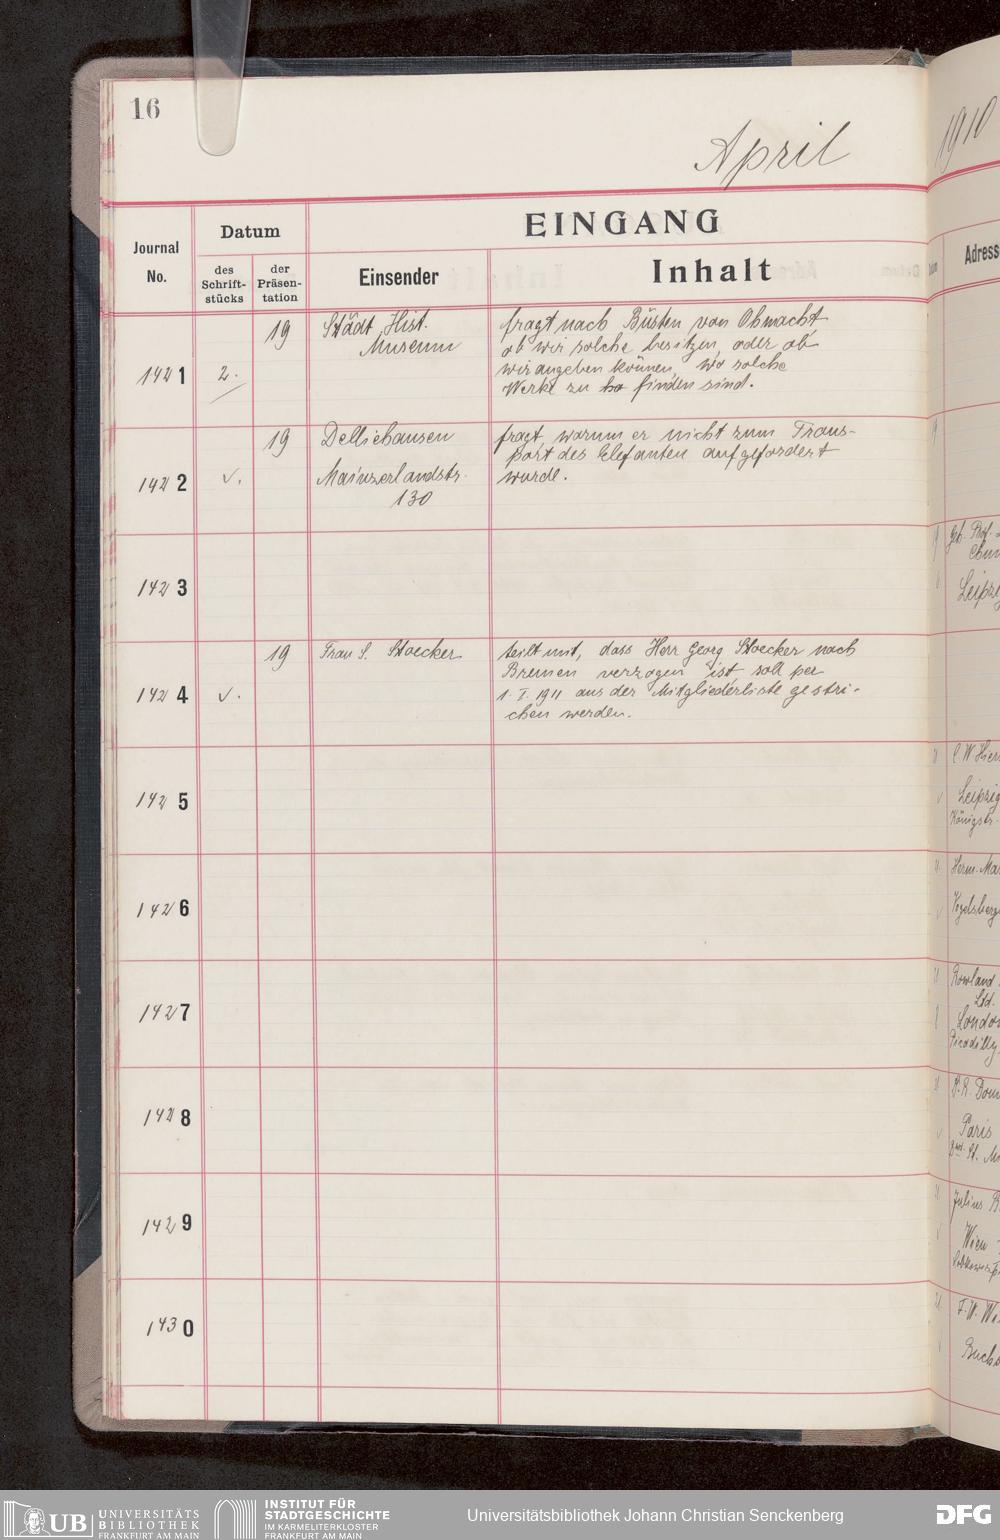 16
April
1910
EINGANG
Journal
No.
Datum
des
Schrift-
stücks
der
Präsen-
tation
Einsender
Inhalt
Adress
1421
2.
19
Städt. Hist.
Museum
fragt nach Büsten von Ohmacht,
ob wir solche besitzen, oder ob
wir angeben können, wo solche
Werke zu finden sind.
1422
19
Delliehausen
Mainzerlandstr.
130
fragt, warum er nicht zum Trans-
port des Elefanten aufgefordert
wurde.
1423
1424
19
Frau S. Stoecker
teilt mit, dass Herr Georg Stoecker nach
Bremen verzogen ist soll per
1. I. 1911 aus der Mitgliederliste gestri-
chen werden.
1425
1426
1427
1428
1429
1430
Leipzig
C. W. Hier
Leipzig
Königstr.
Herm. Ma
Vogelsberg
Rowland
Ltd.
London
Picadilly
Paris
Julius
Wien
F. W.
UB UNIVERSITÄTS
BIBLIOTHEK
FRANKFURT AM MAIN
INSTITUT FÜR
STADTGESCHICHTE
IM KARMELITERKLOSTER
FRANKFURT AM MAIN
Universitätsbibliothek Johann Christian Senckenberg
DFG